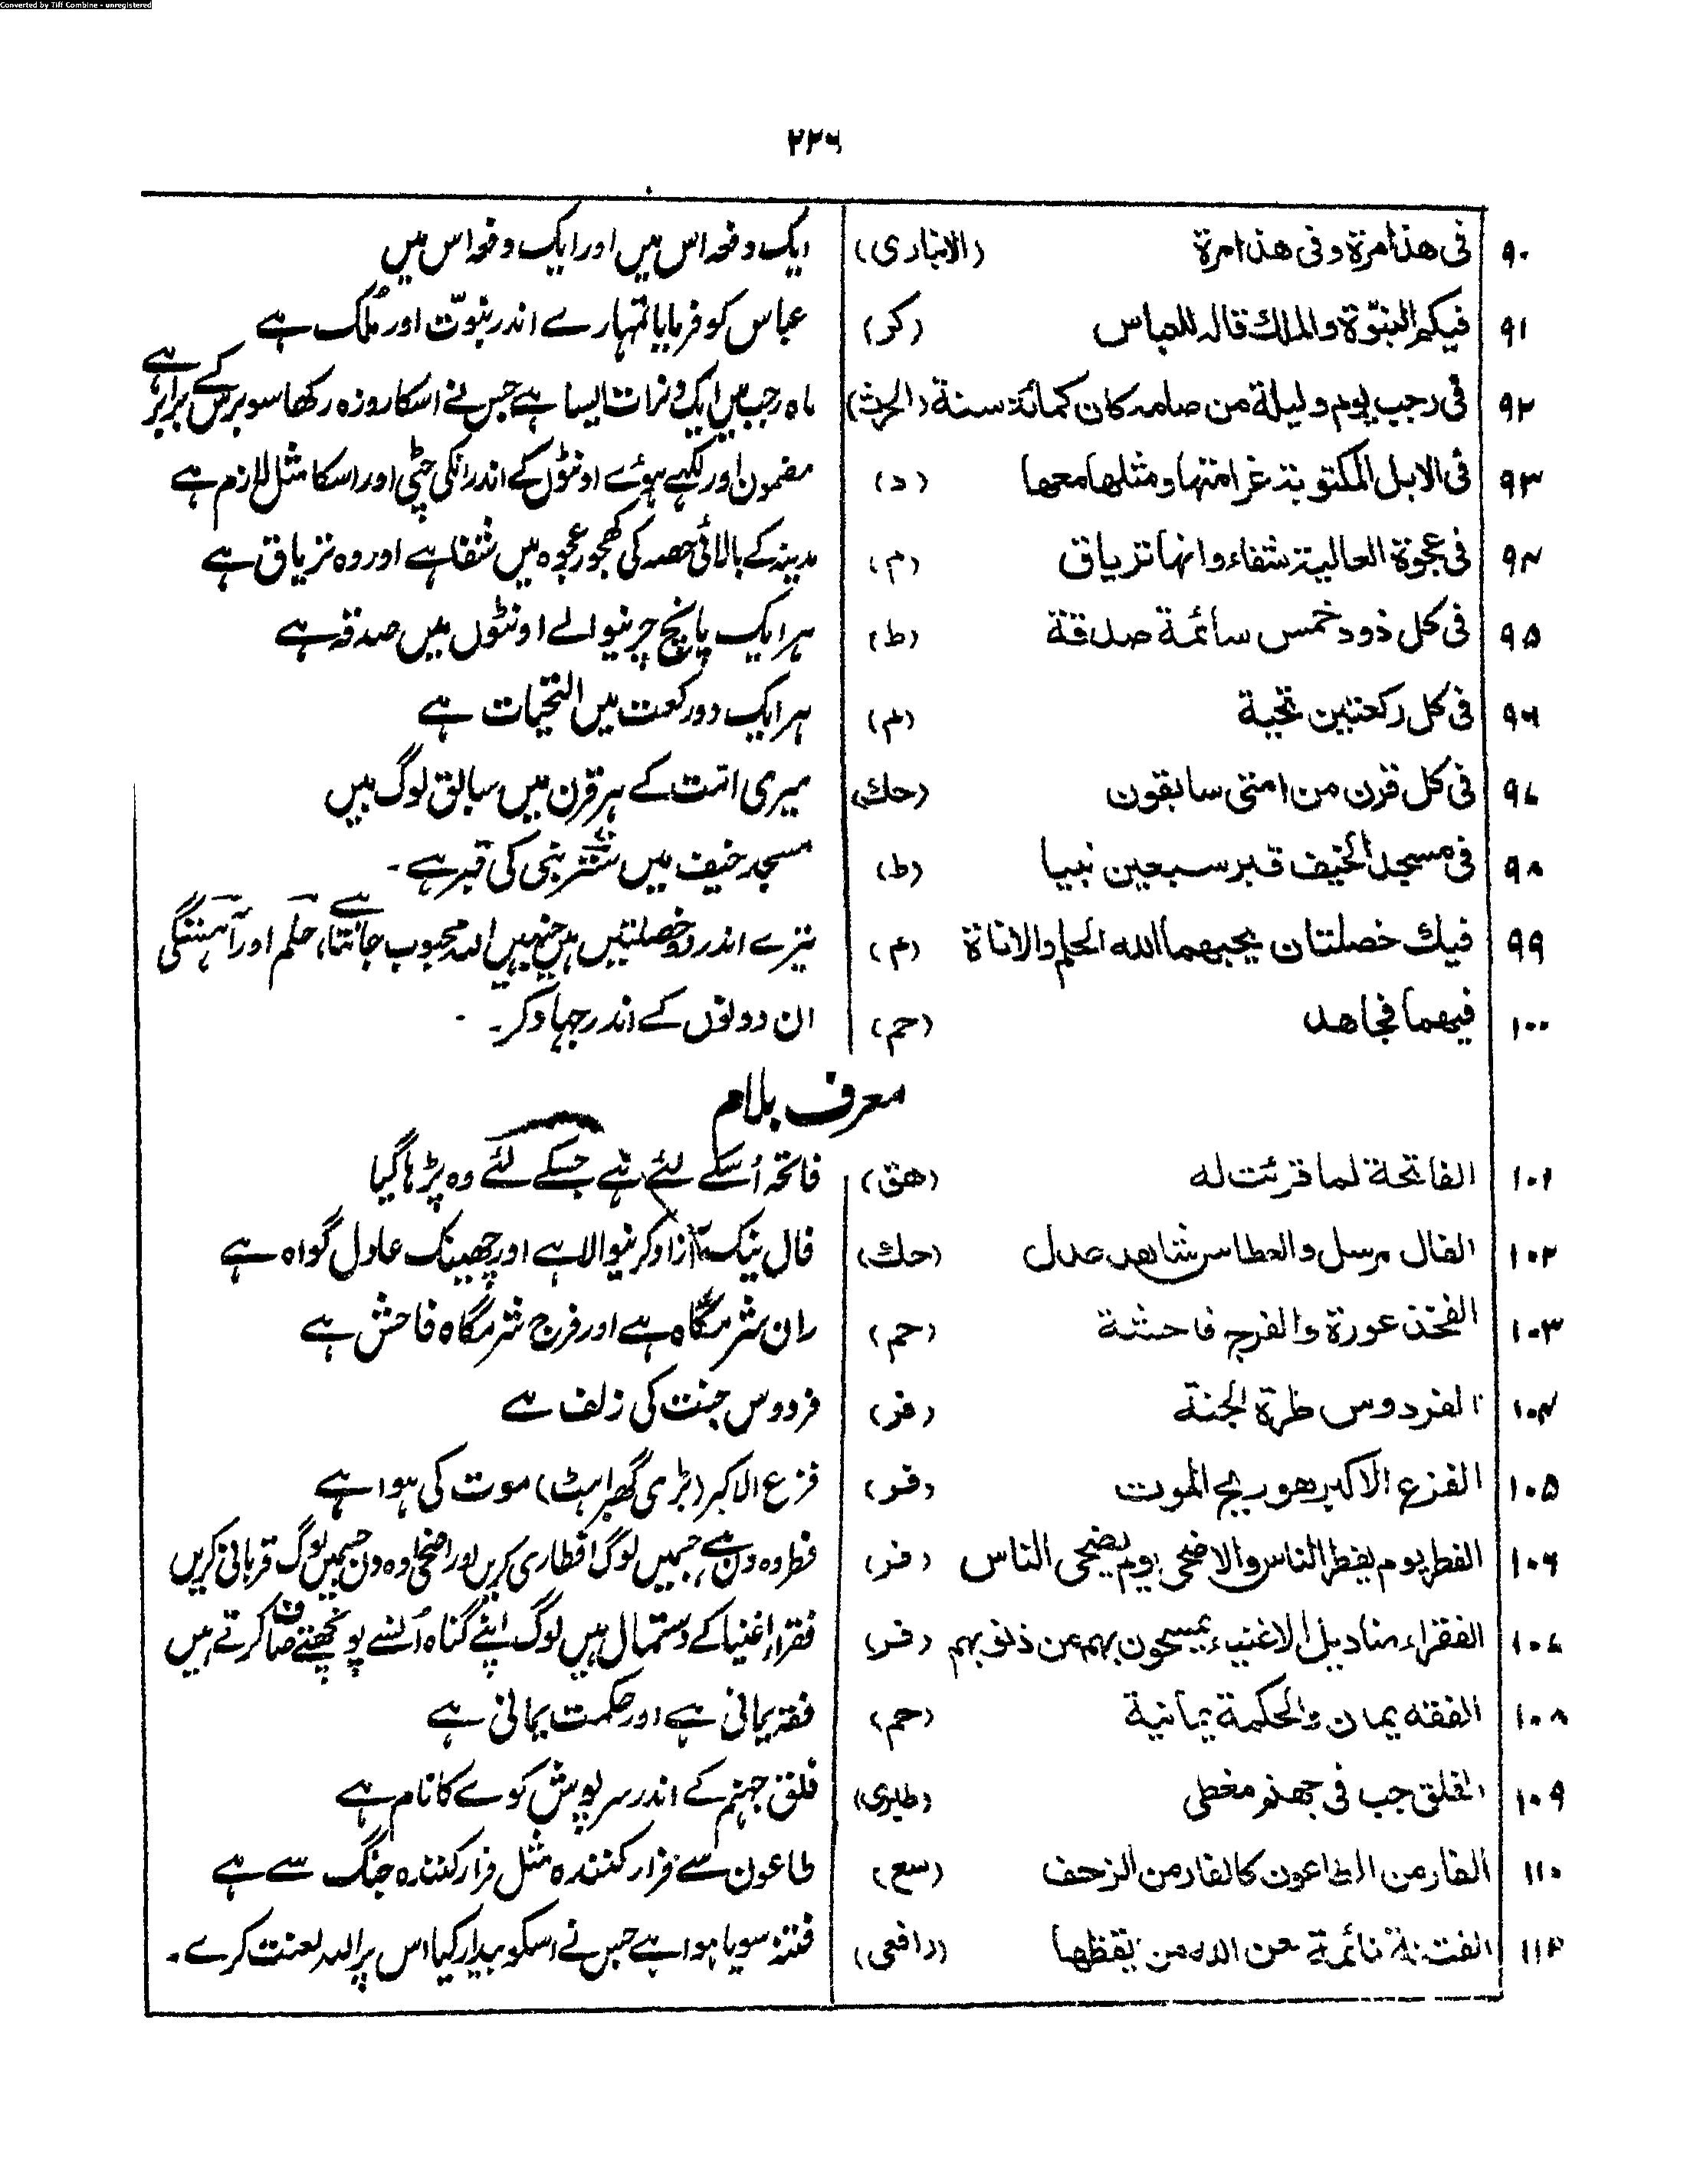 Converted by Tiff Combine - unregistered
۲۲۶
۹۰ فی هذا مرة وفی هذا مرة (الانباری) ایک دفعہ اس میں اور ایک دفعہ اس میں
۹۱ فیکم النبوّة والملك قاله للعباس (کر) عباس کو فرمایا تمہارے اندر نبوّت اور مُلک ہے
۹۲ فی رجب یوم ولیلة من صامه کان کمائة سنة (الحرث) ماہ رجب میں ایک دن رات ایسا ہے جس نے اسکا روزہ رکھا سو برس کے برابر ہے
۹۳ فی الابل المکتوبة غرامتها ومثلها معها (د) مضمون اور لکھے ہوئے اونٹوں کے اندر انکی چٹی اور اسکا مثل لازم ہے
۹۴ فی عجوة العالیة شفاء وانها تریاق (م) مدینہ کے بالائی حصہ کی کھجور عجوہ میں شفا ہے اور وہ تریاق ہے
۹۵ فی کل ذود خمس سائمة صدقة (ط) ہر ایک پانچ چرنیوالے اونٹوں میں صدقہ ہے
۹۶ فی کل رکعتین تحیة (م) ہر ایک دو رکعت میں التحیات ہے
۹۷ فی کل قرن من امتی سابقون (حك) میری امت کے ہر قرن میں سابق لوگ ہیں
۹۸ فی مسجد الخیف قبر سبعین نبیا (ط) مسجد خیف میں ستّر نبی کی قبر ہے۔
۹۹ فیك خصلتان یحبهما الله الحلم والاناة (م) تیرے اندر دو خصلتیں ہیں جنہیں اللہ محبوب جانتا ہے، حلم اور آہستگی
۱۰۰ فیهما فجاهد (حم) ان دونوں کے اندر جہاد کر۔
معرف بلام
۱۰۱ الفاتحة لما قرئت له (هق) فاتحہ اُسکے لئے ہے جسکے لئے وہ پڑہا گیا
۱۰۲ الفال مرسل والعطاس شاهد عدل (حك) فال نیک آزاد کرنیوالا ہے اور چھینک عادل گواہ ہے
۱۰۳ الفخذ عورة والفرج فاحشة (حم) ران شرمگاہ ہے اور فرج شرمگاہ فاحش ہے
۱۰۴ الفردوس طرة الجنة (فر) فردوس جنت کی زلف ہے
۱۰۵ الفزع الاکبر هو ریح الموت (فر) فزع الاکبر (بڑی گھبراہٹ) موت کی ہوا ہے
۱۰۶ الفطر یوم یفطر الناس والاضحی یوم یضحی الناس (فر) فطر وہ دن ہے جسمیں لوگ افطاری کریں اور اضحی وہ دن جسمیں لوگ قربانی کریں
۱۰۷ الفقراء منادیل الاغنیاء یمسحون بهم عن ذنوبهم (فر) فقراء اغنیا کے دستمال ہیں لوگ اپنے گناہ اُنسے پونچھتے صاف کرتے ہیں
۱۰۸ الفقه یمان والحکمة یمانیة (حم) فقہ یمانی ہے اور حکمت یمانی ہے
۱۰۹ الفلق جب فی جهنم مغطی (طبری) فلق جہنم کے اندر سرپوش کوے کا نام ہے
۱۱۰ الفار من الطاعون کالفار من الزحف (سع) طاعون سے فرار کنندہ مثل فرار کنندہ جنگ سے ہے
الفتنة نائمة لعن الله من یقظها (رافعی) فتنہ سویا ہوا ہے جس نے اسکو بیدار کیا اس پر اللہ لعنت کرے۔